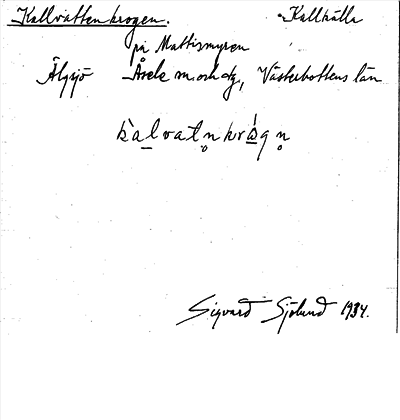 Kallvattenkrogen. Kallkälla
på Mattismyren
Älgsjö Åsele m. och dg, Västerbottens län
kàlvatn̥króg n̥
Sigvard Sjölund 1934.